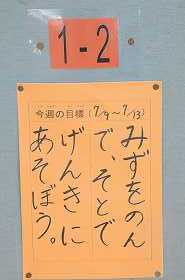 1-2
今週の目標 (7/9~7/13)
みずをのん
で、そとで
げんきに
あそぼう。